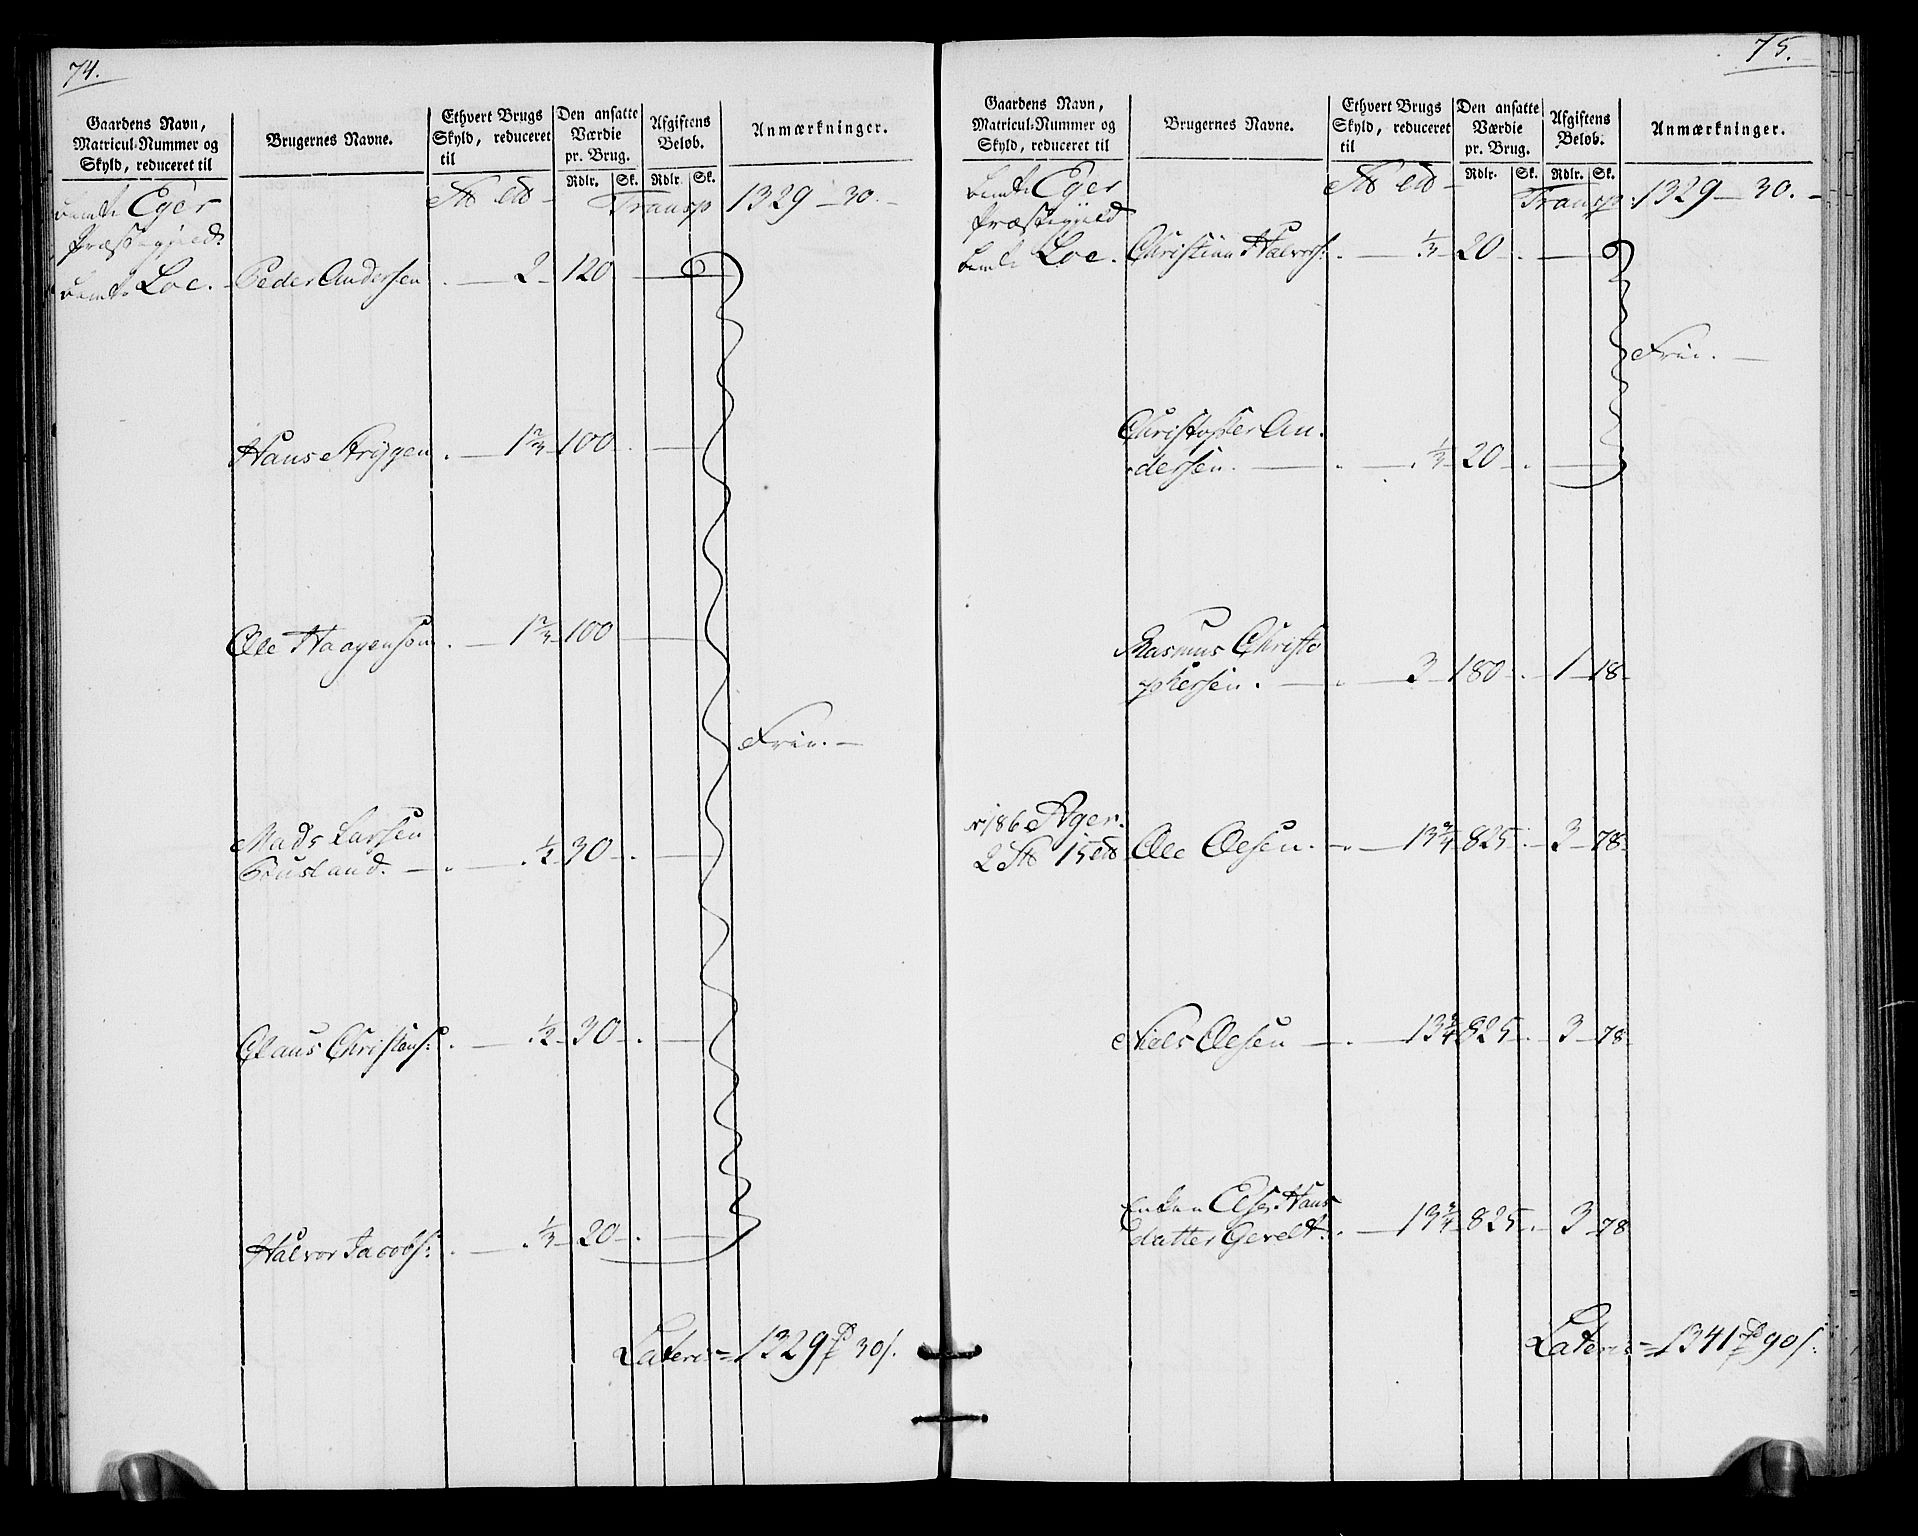 74.
Gaardens Navn,
Matricul-Nummer og
Skyld, reduceret til
Brugernes Navne.
Ethvert Brugs
Skyld, reduceret
til
Den ansatte
Værdie
pr. Brug.
Rdlr. Sk.
Afgiftens
Beløb.
Rdlr. Sk.
Anmærkninger.
Eger
Præstegield
Transp 1329 - 30. -
Loe. Peder Andersen . 2 - 120
Hans Strygen . 1 2/3 - 100 .
Ole Haagensøn . 1 2/3 - 100
Frie. -
Mads Larsen
. 1/2 - 30 - .
Claus Christians: . 1/2 - 30 - .
Halvor Jacobs: . 1/3 - 20 - .
Lateris = 1329 rd 30 s.
75.
Gaardens Navn,
Matricul-Nummer og
Skyld, reduceret til
Brugernes Navne.
Ethvert Brugs
Skyld, reduceret
til
Den ansatte
Værdie
pr. Brug.
Rdlr. Sk.
Afgiftens
Beløb.
Rdlr. Sk.
Anmærkninger.
Eger
Præstegield
Transp. 1329 - 30. -
Loe. Christian Halvors: . 1/3 - 20 - .
Frie. -
Christopher An-
dersen. . 1/3 - 20 - .
Rasmus Christo
phersen. . 3 - 180 - . 1 - 18 -
N 186 Ager.
Ole Olsen. . 13 3/4 - 825 . 3 - 78 -
Niels Olsen . 13 3/4 - 825 - . 3 - 78
Enken Else Hans
datter Gevelt: . 13 3/4 - 825 - . 3 - 78
Lateris = 1341 rd 90 s.